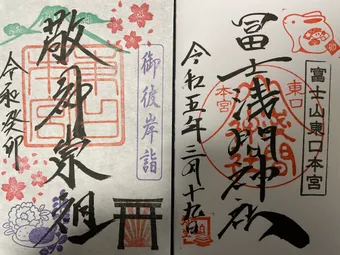 御彼岸詣
敬神崇祖
令和癸卯
富士山東口本宮
冨士浅間神社
東口
本宮
令和五年三月十九日